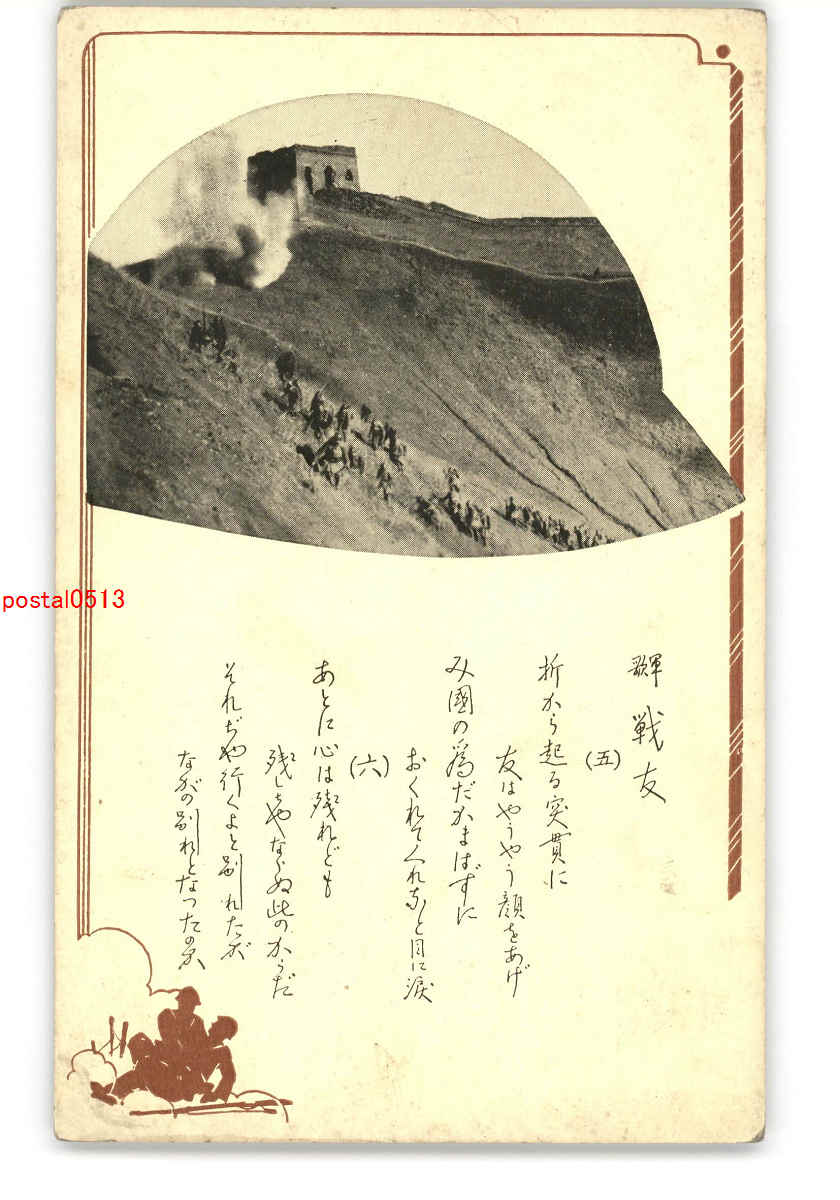 軍歌 戦友
(五)
折から起る突貫に
友はやうやう顔をあげ
み國の為だかまはずに
おくれてくれなと目に涙
(六)
あとに心は残れども
残しちやならぬ此のからだ
それぢや行くよと別れたが
ながの別れとなつたのか
postal0513